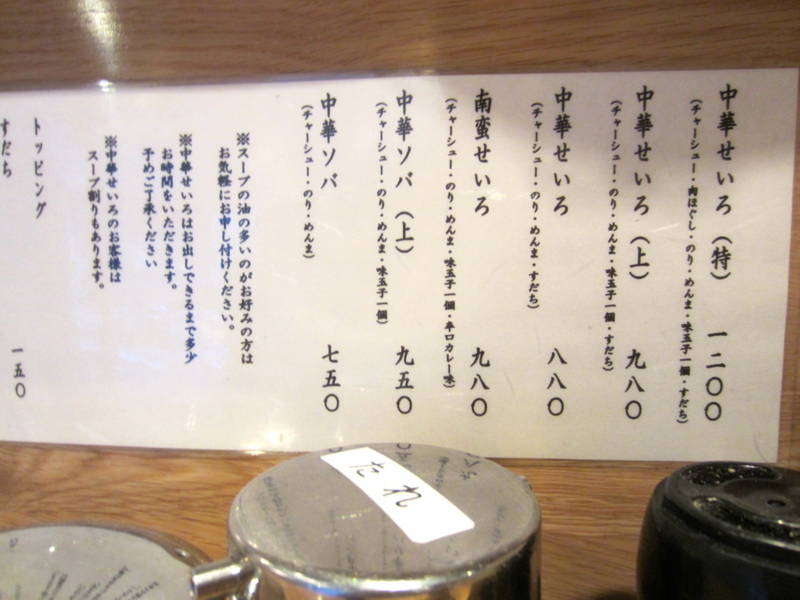 中華せいろ（特） 一二〇〇
（チャーシュー・肉ほぐし・のり・めんま・味玉子一個・すだち）
中華せいろ（上） 九八〇
（チャーシュー・のり・めんま・味玉子一個・すだち）
中華せいろ 八八〇
（チャーシュー・のり・めんま・すだち）
南蛮せいろ 九八〇
（チャーシュー・のり・めんま・味玉子一個・辛口カレー味）
中華ソバ（上） 九五〇
（チャーシュー・のり・めんま・味玉子一個）
中華ソバ 七五〇
（チャーシュー・のり・めんま）
※スープの油の多いのがお好みの方は
お気軽にお申し付けください。
※中華せいろはお出しできるまで多少
お時間をいただきます。
予めご了承ください
※中華せいろのお客様は
スープ割りもあります。
トッピング
すだち 一五〇
たれ